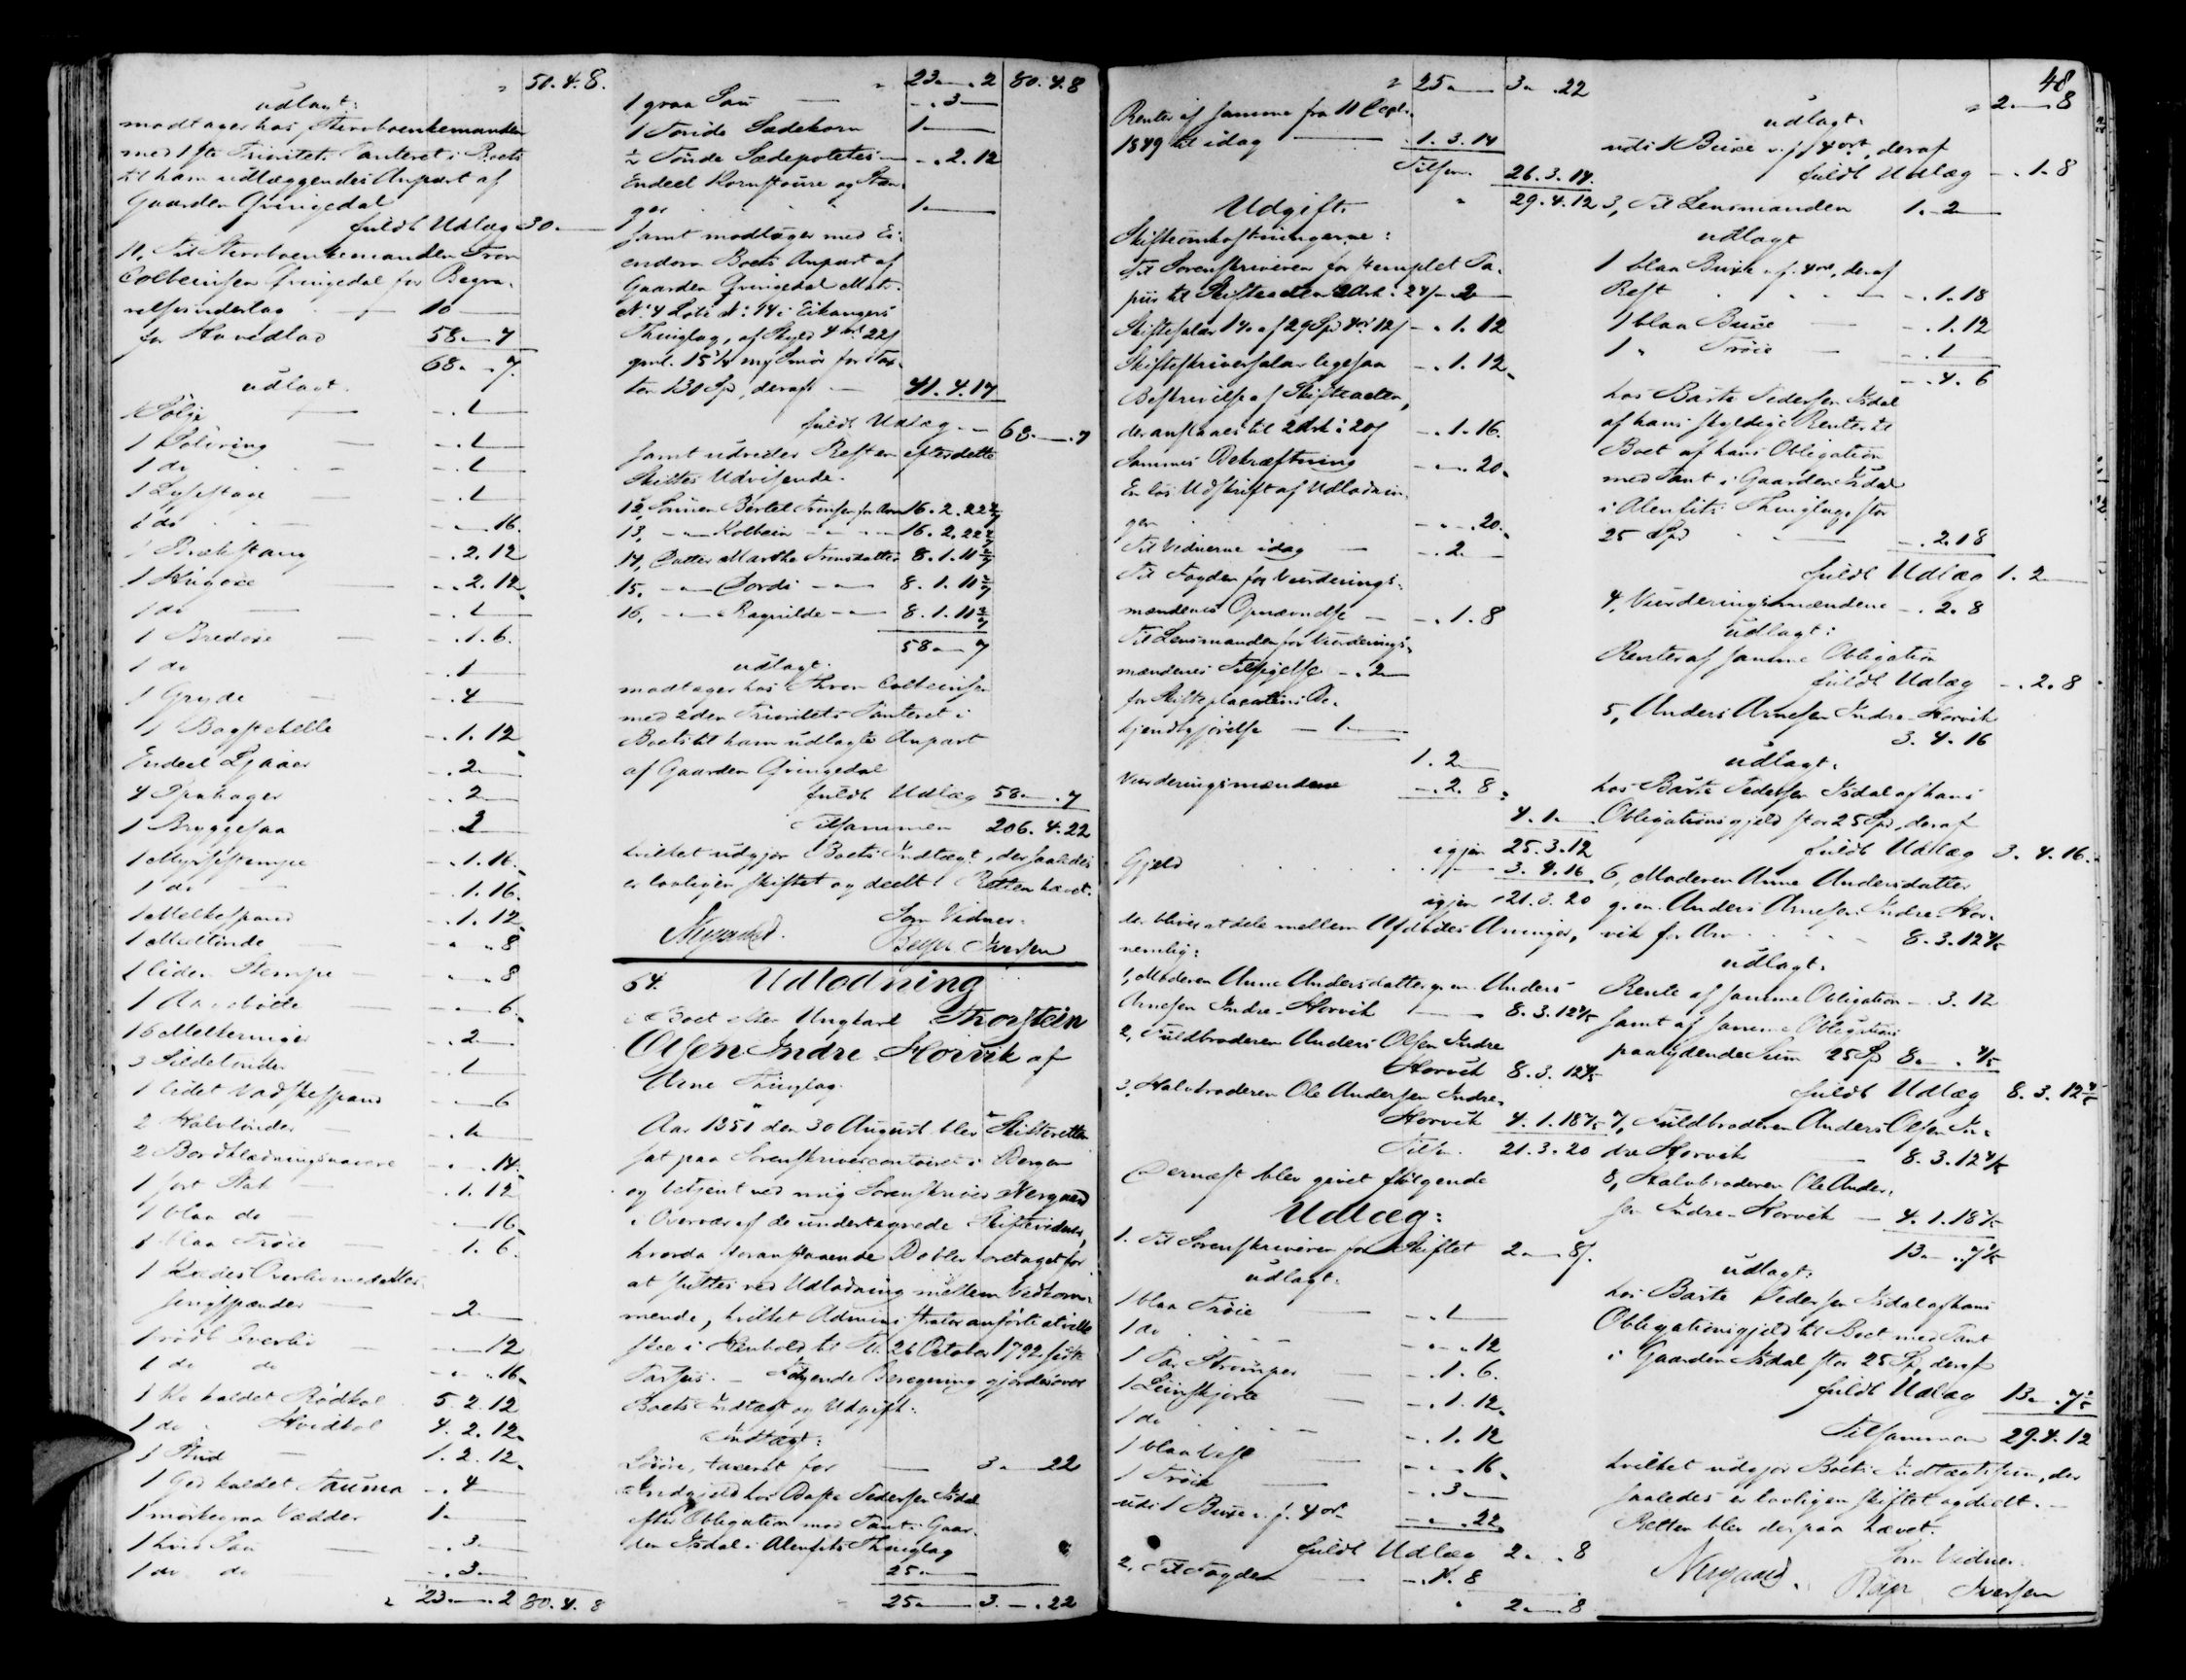 50.4.8.
udlagt:
modtager hos Sterboenkemanden
med 1ste Prioritets Panteret i Boets
til ham udlæggendes Anpart af
Gaarden Qvingedal
fuldt Udlæg 30.
11, Til Sterboenkemanden Tron
Colbeinsen Qvingedal for Begra-
velsesudlæg 10
for Hovedlod 58. - 7
68. - 7.
udlagt.
1 Sølje -.1
1 Sølvring -.1
1 do -.1
1 Lysestage -.1
1 do -.-.16.
1 Brækstang -.2.12
1 Hugøxe -.2.12.
1 do -.1
1 Bredøxe -.1.6.
1 do -.1
1 Gryde -.4
1 Bagstehelle -.1.12
Endeel Ljaaer -.2
4 Spahager -.2
1 Bryggesaa -.2
1 Myssestampe -.1.16.
1 do -.1.16.
1 Melkespand -.1.12
1 Meeltønde -.-.8
1 liden Stampe -.-.8
1 -.-.6.
16 Melkeringer -.2
3 Sildetønder -.1
1 lidet Vadskespand -.-.6
2 Halvtønder -.1
2 Bordklædningsnavere -.-.14.
1 sort Stak -.1.12
1 blaa do -.-.16
1 blaa Trøie -.1.6.
1 Klædes Overliv med Mes-
singspænder -.2
1 rødt Overliv -.-.12
1 do do -.-.16
1 Ko kaldet Rødkol 5.2.12
1 do Hvidkol 4.2.12
1 Stud 1.2.12.
1 Ged kaldet Tauma -.4
1 mørkegraa Vædder 1.
1 hvid Sau -.3
1 do do -.3
23.-.2 80.4.8
23.-.2 80.4.8
1 graa Sau -.3
1 Tønde Sædekorn 1.
½ Tønde Sædepotetes -.2.12
Endeel Kornstøure og Stæn-
ger 1.
samt modtager med Ei-
endom Boets Anpart af
Gaarden Qvingedal Matr.
No 4 Løbe No 14 i Eikangers
Thinglag, af Skyld 4 ort 22 s
gml. 15¼ mrk Smør for Tax-
ten 130 Spd, deraf 41.4.14
fuldt Udlæg 68.-.7
samt udreder Resten efter dette
Skiftes Udvisende.
12, Sønnen Berlet Tronsen for Arv 16.2.22 4/7
13, Kolbein 16.2.22 4/7
14, Datter Marthe Tronsdatter 8.1.11 2/7
15, Gordi 8.1.11 2/7
16, Ragnilde 8.1.11 2/7
58.-.7
udlagt.
modtager hos Thron Colbeinsen
med 2den Prioritets Panteret i
Boets til ham udlagte Anpart
af Gaarden Qvingedal
fuldt Udlæg 58.-.7
Tilsammen 206.4.22
hvilket udgjør Boets Indtægt, der saaledes
er lovligen skiftet og deelt. Retten hævet.
Nergaard. Som Vidner.
Iversen
64. Udlodning
i Boet efter Ungkarl Thorstein
Olsen Indre Horvik af
Arne Thinglag.
Aar 1851 den 30 August blev Skifteretten
sat paa Sorenskrivercontoiret i Bergen
og betjent ved mig Sorenskriver Nergaard
i Overvær af de undertegnede Skiftevidner,
hvorda foranstaaende Bo blev foretaget for
at sluttes ved Udlodning mellem Vedkom-
mende, hvilket Administrator anførte at ville
skee i Henhold til Pl. 26 October 1792 sidste
Passus. - Følgende Beregning gjordes over
Boets Indtægt og Udgift.
Indtægt:
Løsøre, taxeret for 3.-.22
Indgjeld hos Baste Pedersen Isdal
efter Obligation med Pant i Gaar-
den Isdal i Alenfits Thinglag
25.
25.- 3.-.22
48
25.- 3.-.22
Renter af samme fra 11 Sept.
1849 til idag 1.3.14
Tilsm. 26.3.14.
29.4.12
Udgift.
Skifteomkostningerne:
Til Sorenskriveren for stemplet Pa-
piir til Skifteacten 2 Ark à 24 s -.2
Skiftesalær 1% af 29 Spd 4 ort 12 s -.1.12
Skifteskriversalær ligesaa -.1.12.
Beskrivelse af Skifteacten,
der anslaaes til 2 Ark à 20 s -.1.16.
Sammes Bekræftning -.-.20.
En løs Udskrift af Udlodnin-
gen -.-.20.
Til Vidnerne idag -.2
Til Fogden for Vurderings-
mændenes Opnævnelse -.1.8
Til Lensmanden for Vurderings-
mændenes Tilsigelse -.2
for Skifteplacatens Be-
kjendtgjørelse 1.
1.2
Vurderingsmændene -.2.8.
4.1.
igjen 25.3.12
Gjeld 3.4.16
igjen 21.3.20
der bliver at dele mellem Afdødes Arvinger,
nemlig:
1, Moderen Anne Andersdatter g. m. Anders
Arnesen Indre Horvik 8.3.12 4/5
2, Fuldbroderen Anders Olsen Indre
Horvik 8.3.12 4/5
3, Halvbroderen Ole Andersen Indre
Horvik 4.1.18 2/5
Tilsm. 21.3.20
Dernæst blev givet følgende
Udlæg:
1. Til Sorenskriveren for Skiftet 2.-.8 s.
udlagt.
1 blaa Trøie -.1
1 do -.-.12
1 Par Strømper -.1.6.
1 Liinskjorte -.1.12.
1 do -.1.12
1 blaa Vest -.-.16.
1 Trøie -.3
udi 1 Buxe v. f. 4 ort -.-.22
fuldt Udlæg 2.-.8
2, Til Fogden -.1.8
2.-.8
2.-.8
udlagt.
udi 1 Buxe v. f. 4 ort, deraf
fuldt Udlæg -.1.8
3, Til Lensmanden 1.2
udlagt
1 blaa Buxe v. f. 4 ort, deraf
Rest -.1.18
1 blaa Buxe -.1.12
1 " Trøie -.1
-.4.6
hos Baste Pedersen Isdal
af hans skyldige Renter til
Boet af hans Obligation
med Pant i Gaarden Isdal
i Alenfits Thinglag, stor
25 Spd -.2.18
fuldt Udlæg 1.2
4, Vurderingsmændene -.2.8
udlagt:
Renter af samme Obligation
fuldt Udlæg -.2.8
5, Anders Arnesen Indre Horvik
3.4.16
udlagt.
hos Baste Pedersen Isdal af hans
Obligationsgjeld stor 25 Spd, deraf
fuldt Udlæg 3.4.16.
6, Moderen Anne Andersdatter
g. m. Anders Arnesen Indre Hor-
vik for Arv 8.3.12 4/5
udlagt.
Rente af samme Obligation -.3.12
samt af samme Obligations
paalydende Sum 25 Spd 8.-.4/5
fuldt Udlæg 8.3.12 4/5
7, Fuldbroderen Anders Olsen In-
dre Horvik 8.3.12 4/5
8, Halvbroderen Ole Ander-
sen Indre Horvik 4.1.18 2/5
13.-.7 1/5
udlagt.
hos Baste Pedersen Isdal af hans
Obligationsgjeld til Boet med Pant
i Gaarden Isdal stor 25 Spd, deraf
fuldt Udlæg 13.-.7 1/5
Tilsammen 29.4.12
hvilket udgjør Boets Indtægtssum, der
saaledes er lovligen skiftet og deelt. -
Retten blev derpaa hævet.
Nergaard. Som Vidner.
Iversen